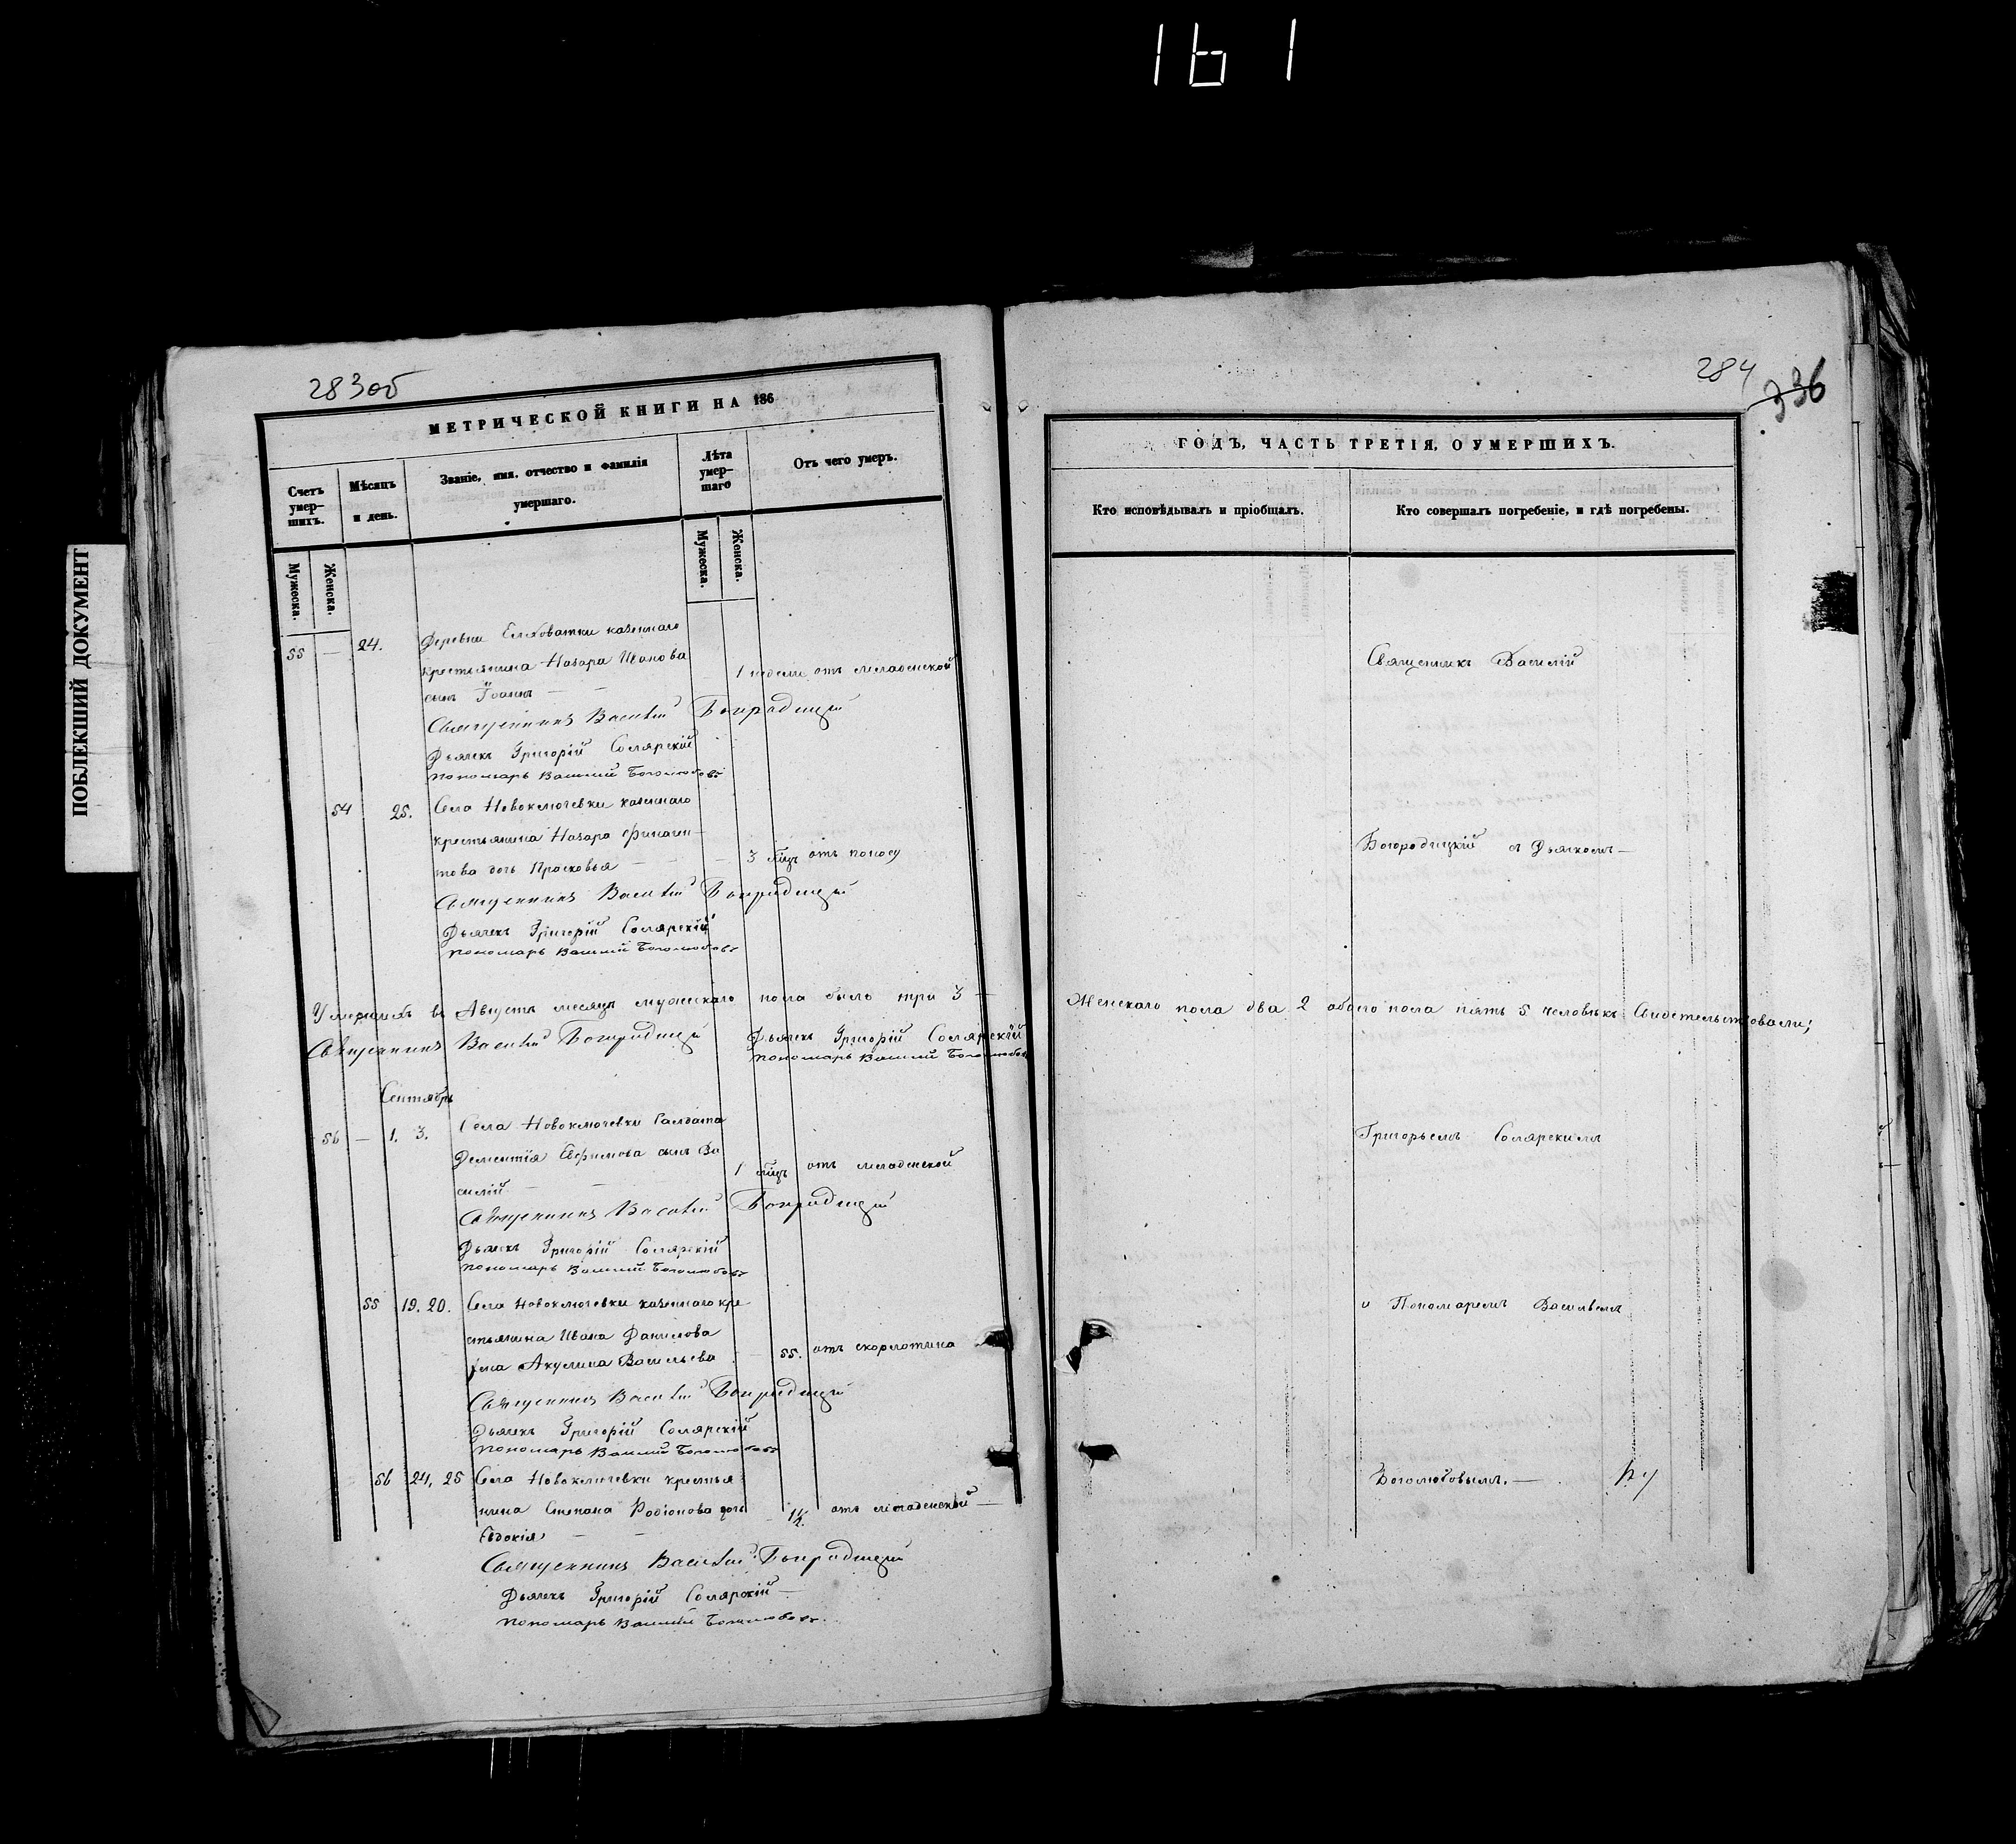 161
ПОБЛЕКШИЙ ДОКУМЕНТ
283об
МЕТРИЧЕСКОЙ КНИГИ НА 186
Счетъ умер-шихъ.
Мѣсяцъ и день.
Званіе, имя, отчество и фамилія умершаго.
Лѣта умер-шаго
Отъ чего умеръ.
Мужеска.
Женска.
Мужеска.
Женска.
55 — 24. Деревни казеннаго
крестьянина Назара Иванова
1 недели отъ младенской
сынъ Іоаннъ — —
Священникъ Василій Богородицкій
Дьячекъ Григорій Солярскій
пономарь Василій Боголюбовъ
54 25. Села Новоключевки казеннаго
крестьянина Назара Финоген-
това дочь Прасковья — — — 3 мѣц отъ поносу
Священникъ Василій Богородицкій
Дьячекъ Григорій Солярскій
пономарь Василій Боголюбовъ
Умершихъ въ Августѣ месяцѣ мужескаго пола было три 3 —
Священникъ Василій Богородицкій Дьячекъ Григорій Солярскій
пономарь Василій Боголюбовъ
Сентябрь
56 — 1. 3. Села Новоключевки Салдата
Дементія Ефимова сынъ Ва
силій — — 1 мѣцъ отъ младенской
Священникъ Василій Богородицкій
Дьячекъ Григорій Солярскій
пономарь Василій Боголюбовъ
55 19. 20. Села Новоключевки казеннаго кре
стьянина Ивана Данилова
жена Акулина Васильева — 55. отъ скорлотина
Священникъ Василій Богородицкій
Дьячекъ Григорій Солярскій
пономарь Василій Боголюбовъ
56 24, 25 Села Новоключевки крестья
нина Степана Родіонова дочь — 1½. отъ младенской —
Евдокія — —
Священникъ Василій Богородицкій
Дьячекъ Григорій Солярскій —
пономарь Василій Боголюбовъ.
284
336
ГОДЪ, ЧАСТЬ ТРЕТІЯ, О УМЕРШИХЪ.
Кто исповѣдывалъ и пріобщалъ.
Кто совершалъ погребеніе, и гдѣ погребены.
Священникъ Василій
Богородицкій съ Дьячкомъ —
Женскаго пола два 2 обоего пола пять 5 человѣкъ Свидетельствовали;
Григорьемъ Солярскимъ
и Пономаремъ Васильемъ
Боголюбовымъ. —